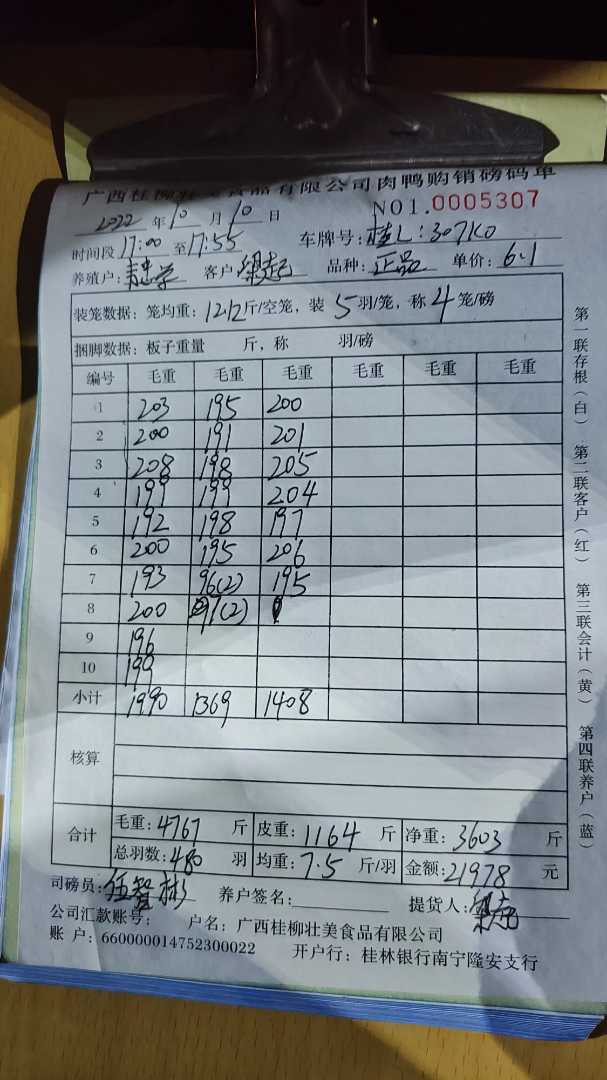 广西桂柳壮美食品有限公司肉鸭购销磅码单
2022 年 10 月 10 日 NO1.0005307
时间段 17:00 至 17:55 车牌号: 桂L:307K0
养殖户: 客户: 品种: 正品 单价: 6.1
装笼数据: 笼均重: 12.12 斤/空笼, 装 5 羽/笼, 称 4 笼/磅
捆脚数据: 板子重量 斤, 称 羽/磅
编号 毛重 毛重 毛重 毛重 毛重 毛重
1 203 195 200
2 200 191 201
3 208 198 205
4 199 199 204
5 192 198 197
6 200 195 206
7 193 96(2) 195
8 200 97(2)
9 196
10 199
小计 1990 1369 1408
核算
合计 毛重: 4767 斤 皮重: 1164 斤 净重: 3603 斤
总羽数: 480 羽 均重: 7.5 斤/羽 金额: 21978 元
司磅员: 伍智彬 养户签名: 提货人:
公司汇款账号: 户名: 广西桂柳壮美食品有限公司
账 户: 660000014752300022 开户行: 桂林银行南宁隆安支行
第一联存根(白) 第二联客户(红) 第三联会计(黄) 第四联养户(蓝)